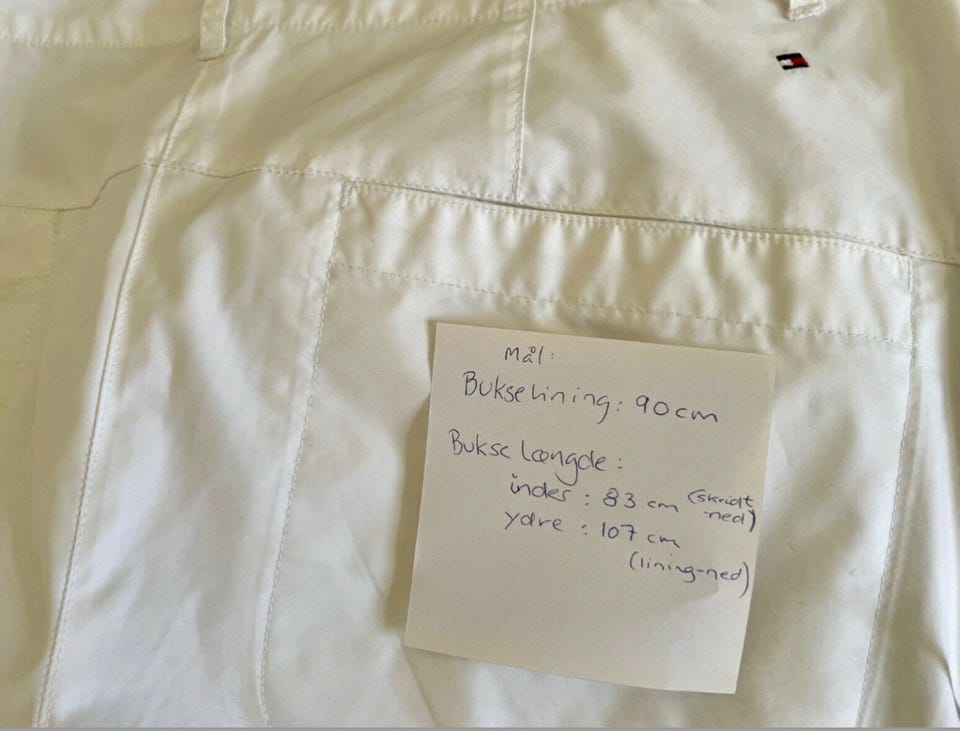 Mål:
Bukselining: 90cm
Bukse længde:
indes: 83 cm (skridt
ned)
ydre: 107 cm
(lining-ned)